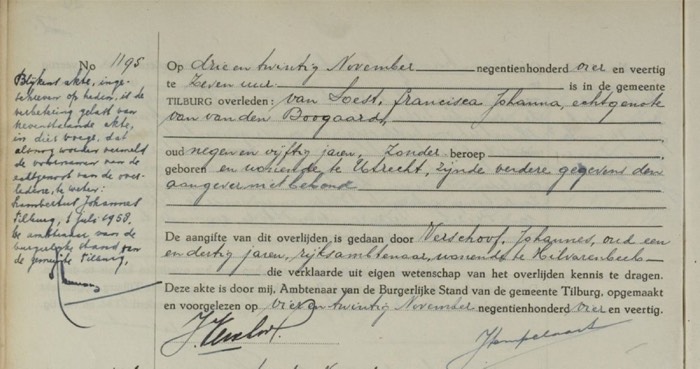 No 1195
Blijkens akte, inge-
schreven op heden, is de
verbetering gelast van
nevenstaande akte,
in dier voege, dat
alsnog worden vermeld
de voornamen van de
echtgenoot van de over-
ledene, te weten:
Lambertus Johannes
Tilburg, 1 Juli 1958.
De ambtenaar van de
burgerlijke stand van
de gemeente Tilburg,
Op drie en twintig November negentienhonderd vier en veertig
te zeven uur is in de gemeente
TILBURG overleden: van Soest, Francisca Johanna, echtgenote
van van den Boogaard,
oud negen en vijftig jaren, zonder beroep
geboren en wonende te Utrecht, zijnde verdere gegevens den
aangever niet bekend
De aangifte van dit overlijden is gedaan door Verschoof, Johannes, oud een
en dertig jaren, rijksambtenaar, wonende te Hilvarenbeek
die verklaarde uit eigen wetenschap van het overlijden kennis te dragen.
Deze akte is door mij, Ambtenaar van de Burgerlijke Stand van de gemeente Tilburg, opgemaakt
en voorgelezen op vier en twintig November negentienhonderd vier en veertig.